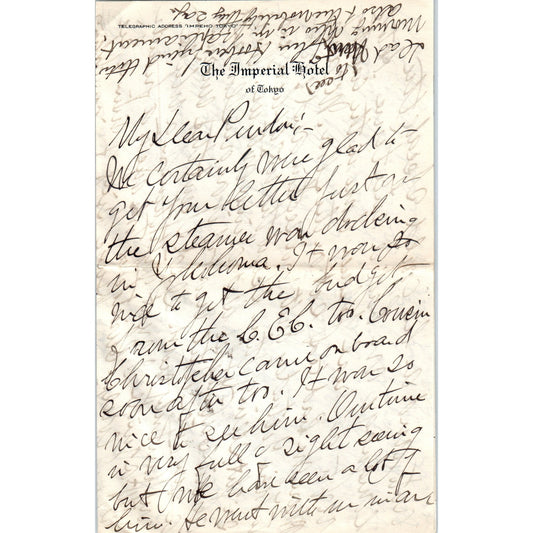 TELEGRAPHIC ADDRESS "IMPEHO, TOKYO"
The Imperial Hotel
of Tokyo
My Dear
We certainly were glad to
get your letter just as
the steamer was docking
in Yokohoma. It was so
nice to get the budget
from the C. E. C. too. Cousin
Christopher came on board
soon after too. It was so
nice to see him. Our time
is very full & sight seeing
but we have seen a lot of
him. He went with us in an